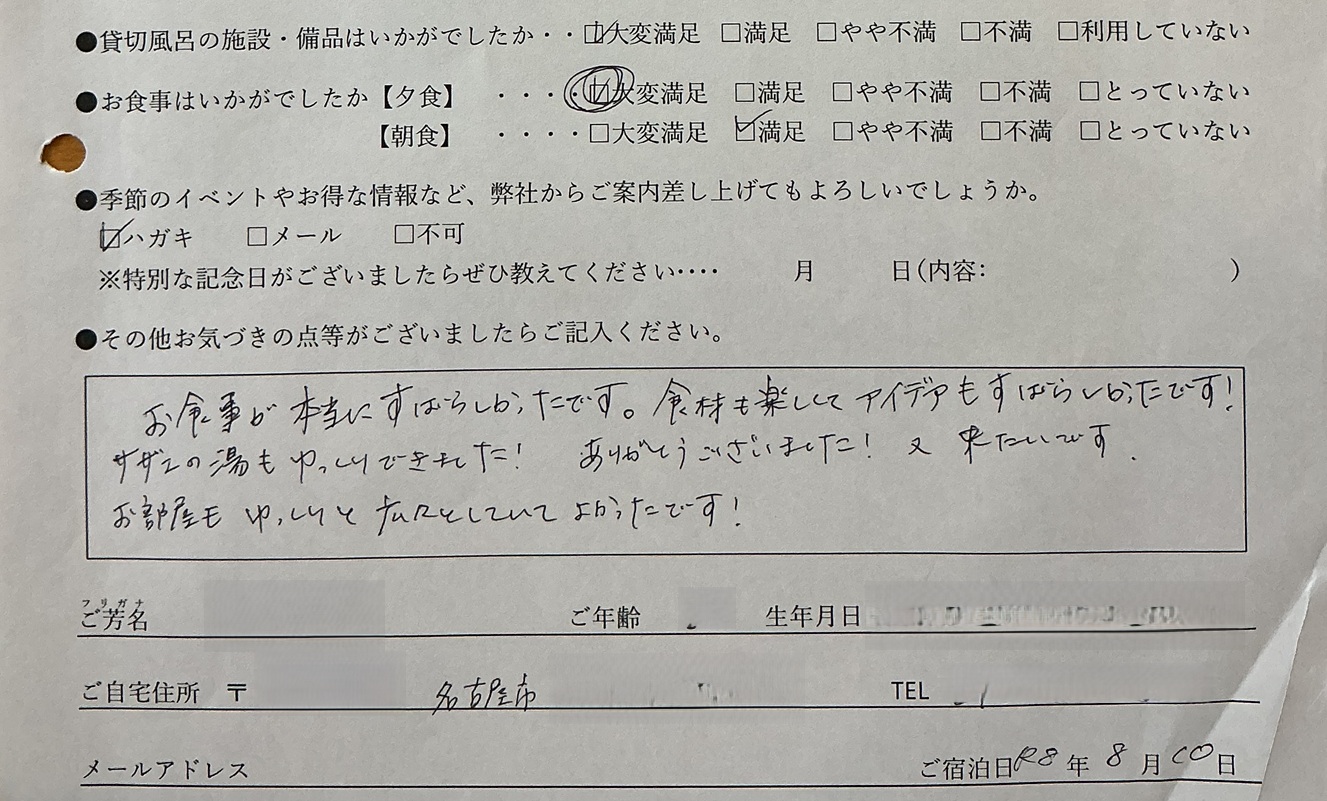 ●貸切風呂の施設・備品はいかがでしたか・・☑大変満足 □満足 □やや不満 □不満 □利用していない
●お食事はいかがでしたか【夕食】 ・・・・☑大変満足 □満足 □やや不満 □不満 □とっていない
【朝食】 ・・・・□大変満足 ☑満足 □やや不満 □不満 □とっていない
●季節のイベントやお得な情報など、弊社からご案内差し上げてもよろしいでしょうか。
☑ハガキ □メール □不可
※特別な記念日がございましたらぜひ教えてください‥‥ 月 日(内容: )
●その他お気づきの点等がございましたらご記入ください。
お食事が本当にすばらしかったです。食材も楽しくてアイデアもすばらしかったです!
サザエの湯もゆっくりできました! ありがとうございました! 又 来たいです.
お部屋もゆっくりと広々としていてよかったです!
フリガナ
ご芳名 ご年齢 生年月日
ご自宅住所 〒 名古屋市 TEL
メールアドレス ご宿泊日R8年 8月10日